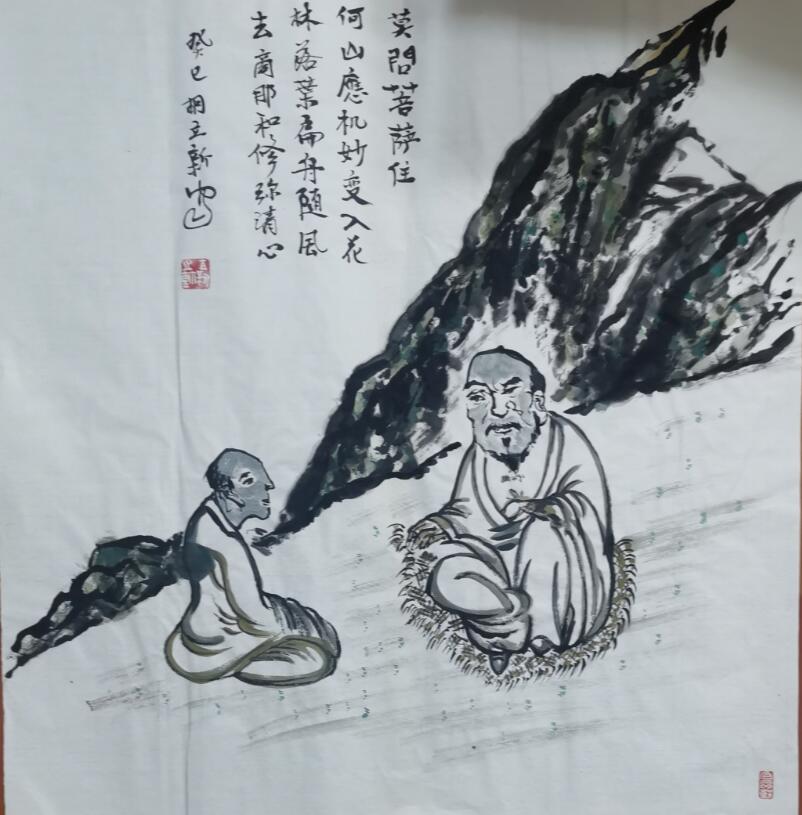 莫問菩薩住
何山應机妙变入花
林落葉扁舟随風
去商那和修弥清心
癸巳 王新